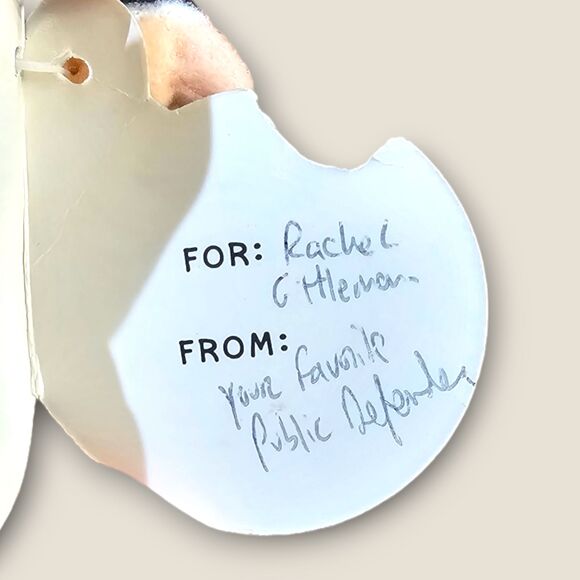 FOR: Rachel
Gittleman
FROM:
Your Favorite
Public Defender